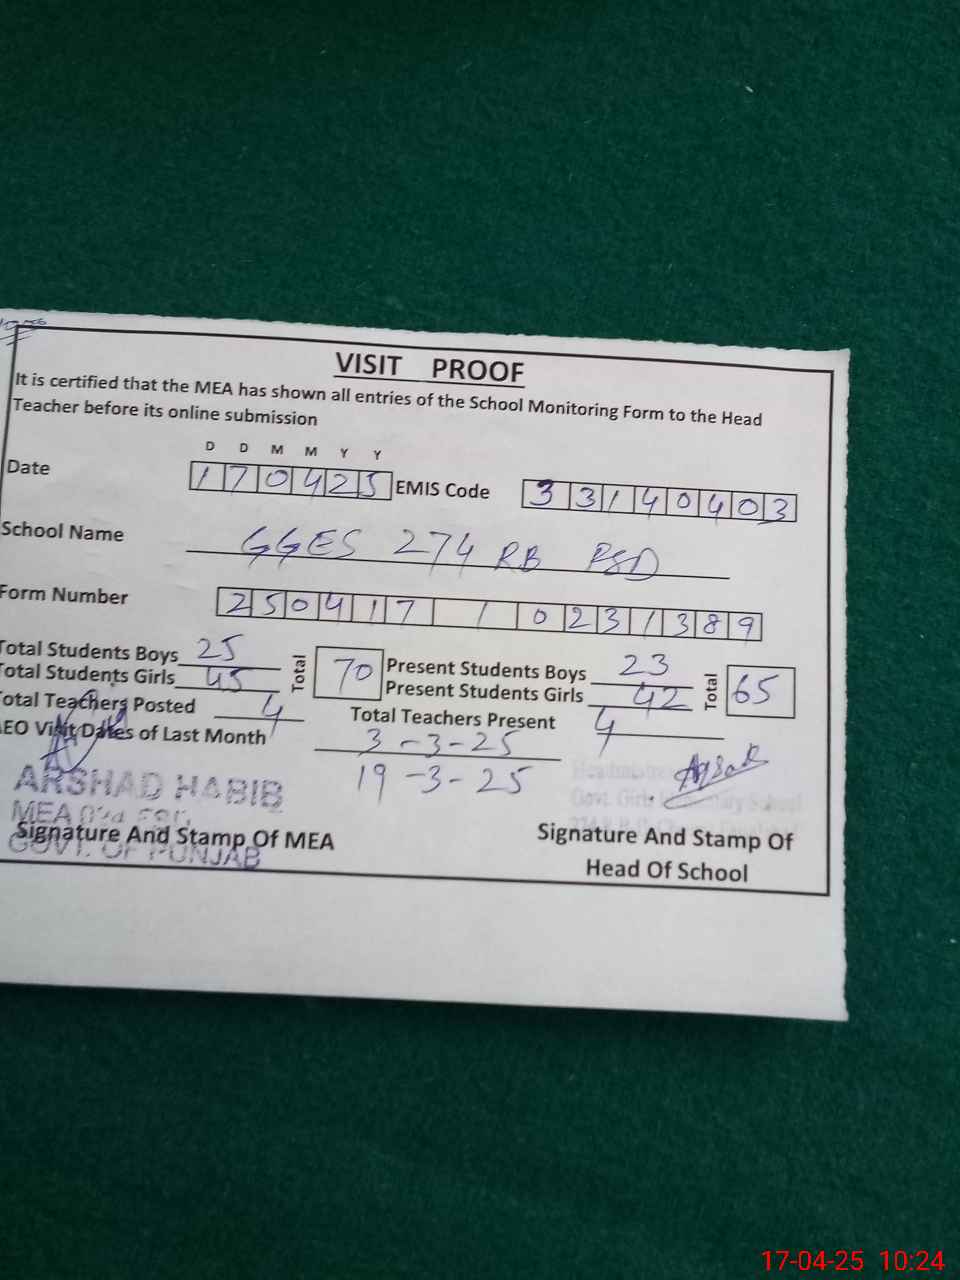 VISIT PROOF
It is certified that the MEA has shown all entries of the School Monitoring Form to the Head
Teacher before its online submission
D D M M Y Y
Date 170425 EMIS Code 33140403
School Name GGES 274 RB FSD
Form Number 250417 / 0231389
Total Students Boys 25 Total 70 Present Students Boys 23 Total 65
Total Students Girls 45 Present Students Girls 42
Total Teachers Posted 4 Total Teachers Present 4
EO Visit Dates of Last Month 3-3-25
19-3-25
ARSHAD HABIB
MEA
GOVT. OF PUNJAB
Govt. Girls School
Signature And Stamp Of MEA
Signature And Stamp Of
Head Of School
17-04-25 10:24